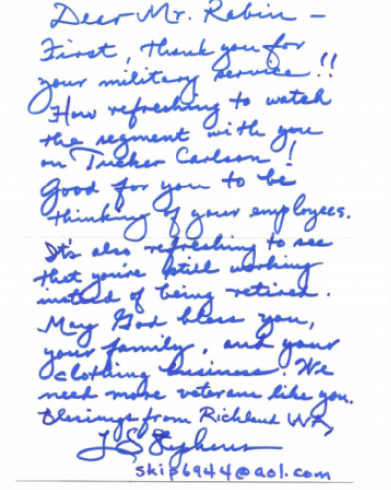 Dear Mr. Rabin –
First, thank you for
your military service!!
How refreshing to watch
the segment with you
on Tucker Carlson!
Good for you to be
thinking of your employees.
It's also refreshing to see
that you're still working
instead of being retired.
May God bless you,
your family, and your
clothing business. We
need more veterans like you.
Blessings from Richland WA,
J S
skip6944@aol.com